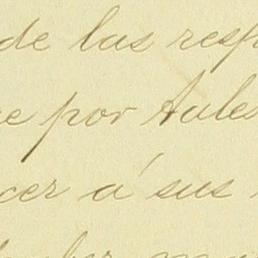 de las resp
e por tales
cer á sus